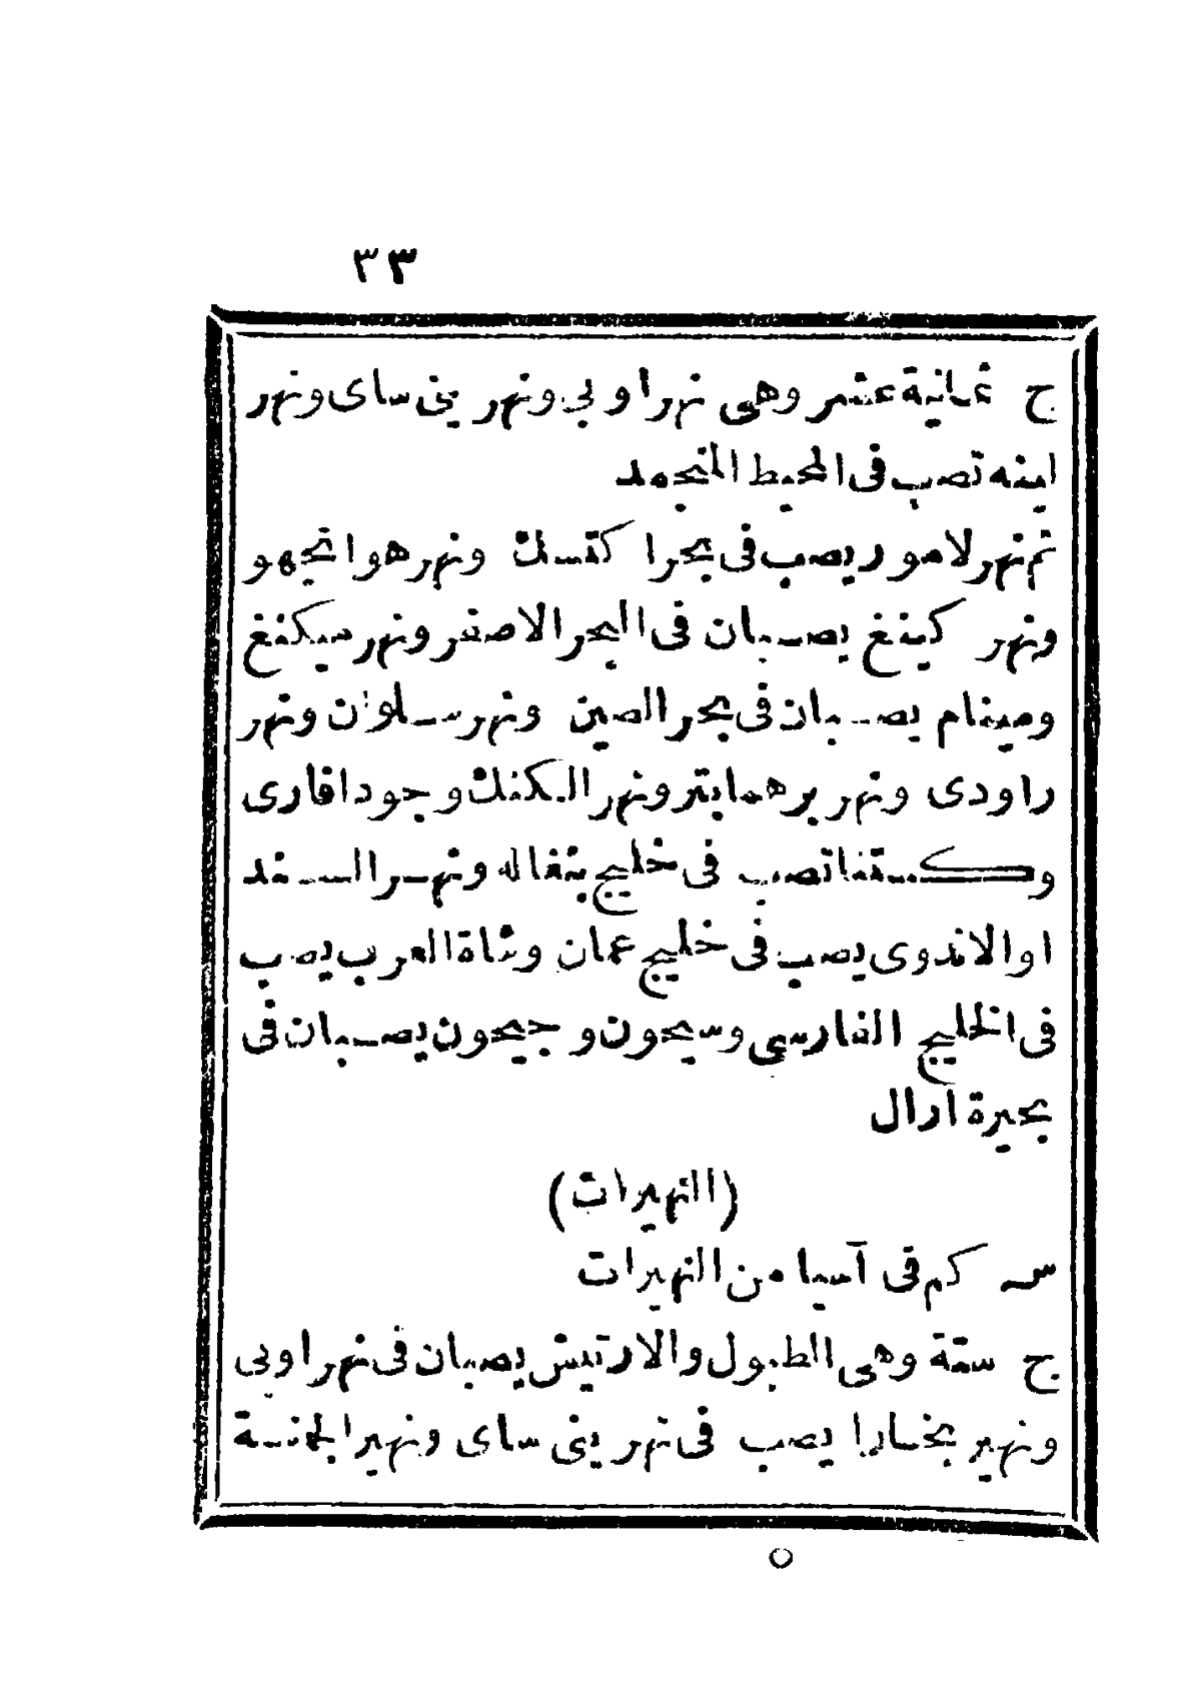 ٣٣
ج ثمانية عشر وهى نهر اوبي ونهر ينى ساى ونهر
لينه تصب فى المحيط المنجمد
ثم نهر لامور يصب فى بحر اكتسك ونهر هوانجهو
ونهر كينغ يصبان فى البحر الاصفر ونهر سيكنغ
ومينام يصبان فى بحر الصين ونهر سلوان ونهر
راودى ونهر برهمابتر ونهر الكنك وجود اقارى
وكستنا تصب فى خليج بنغاله ونهر السند
او الاندوى يصب فى خليج عمان وشاة العرب يصب
فى الخليج الفارسى وسيحون وجيحون يصبان فى
بحيرة آرال
(النهيرات)
س كم فى آسيا من النهيرات
ج ستة وهى الطبول والارتيش يصبان فى نهر اوبى
ونهير بخسارا يصب فى نهر ينى ساى ونهير الجمنة
٥